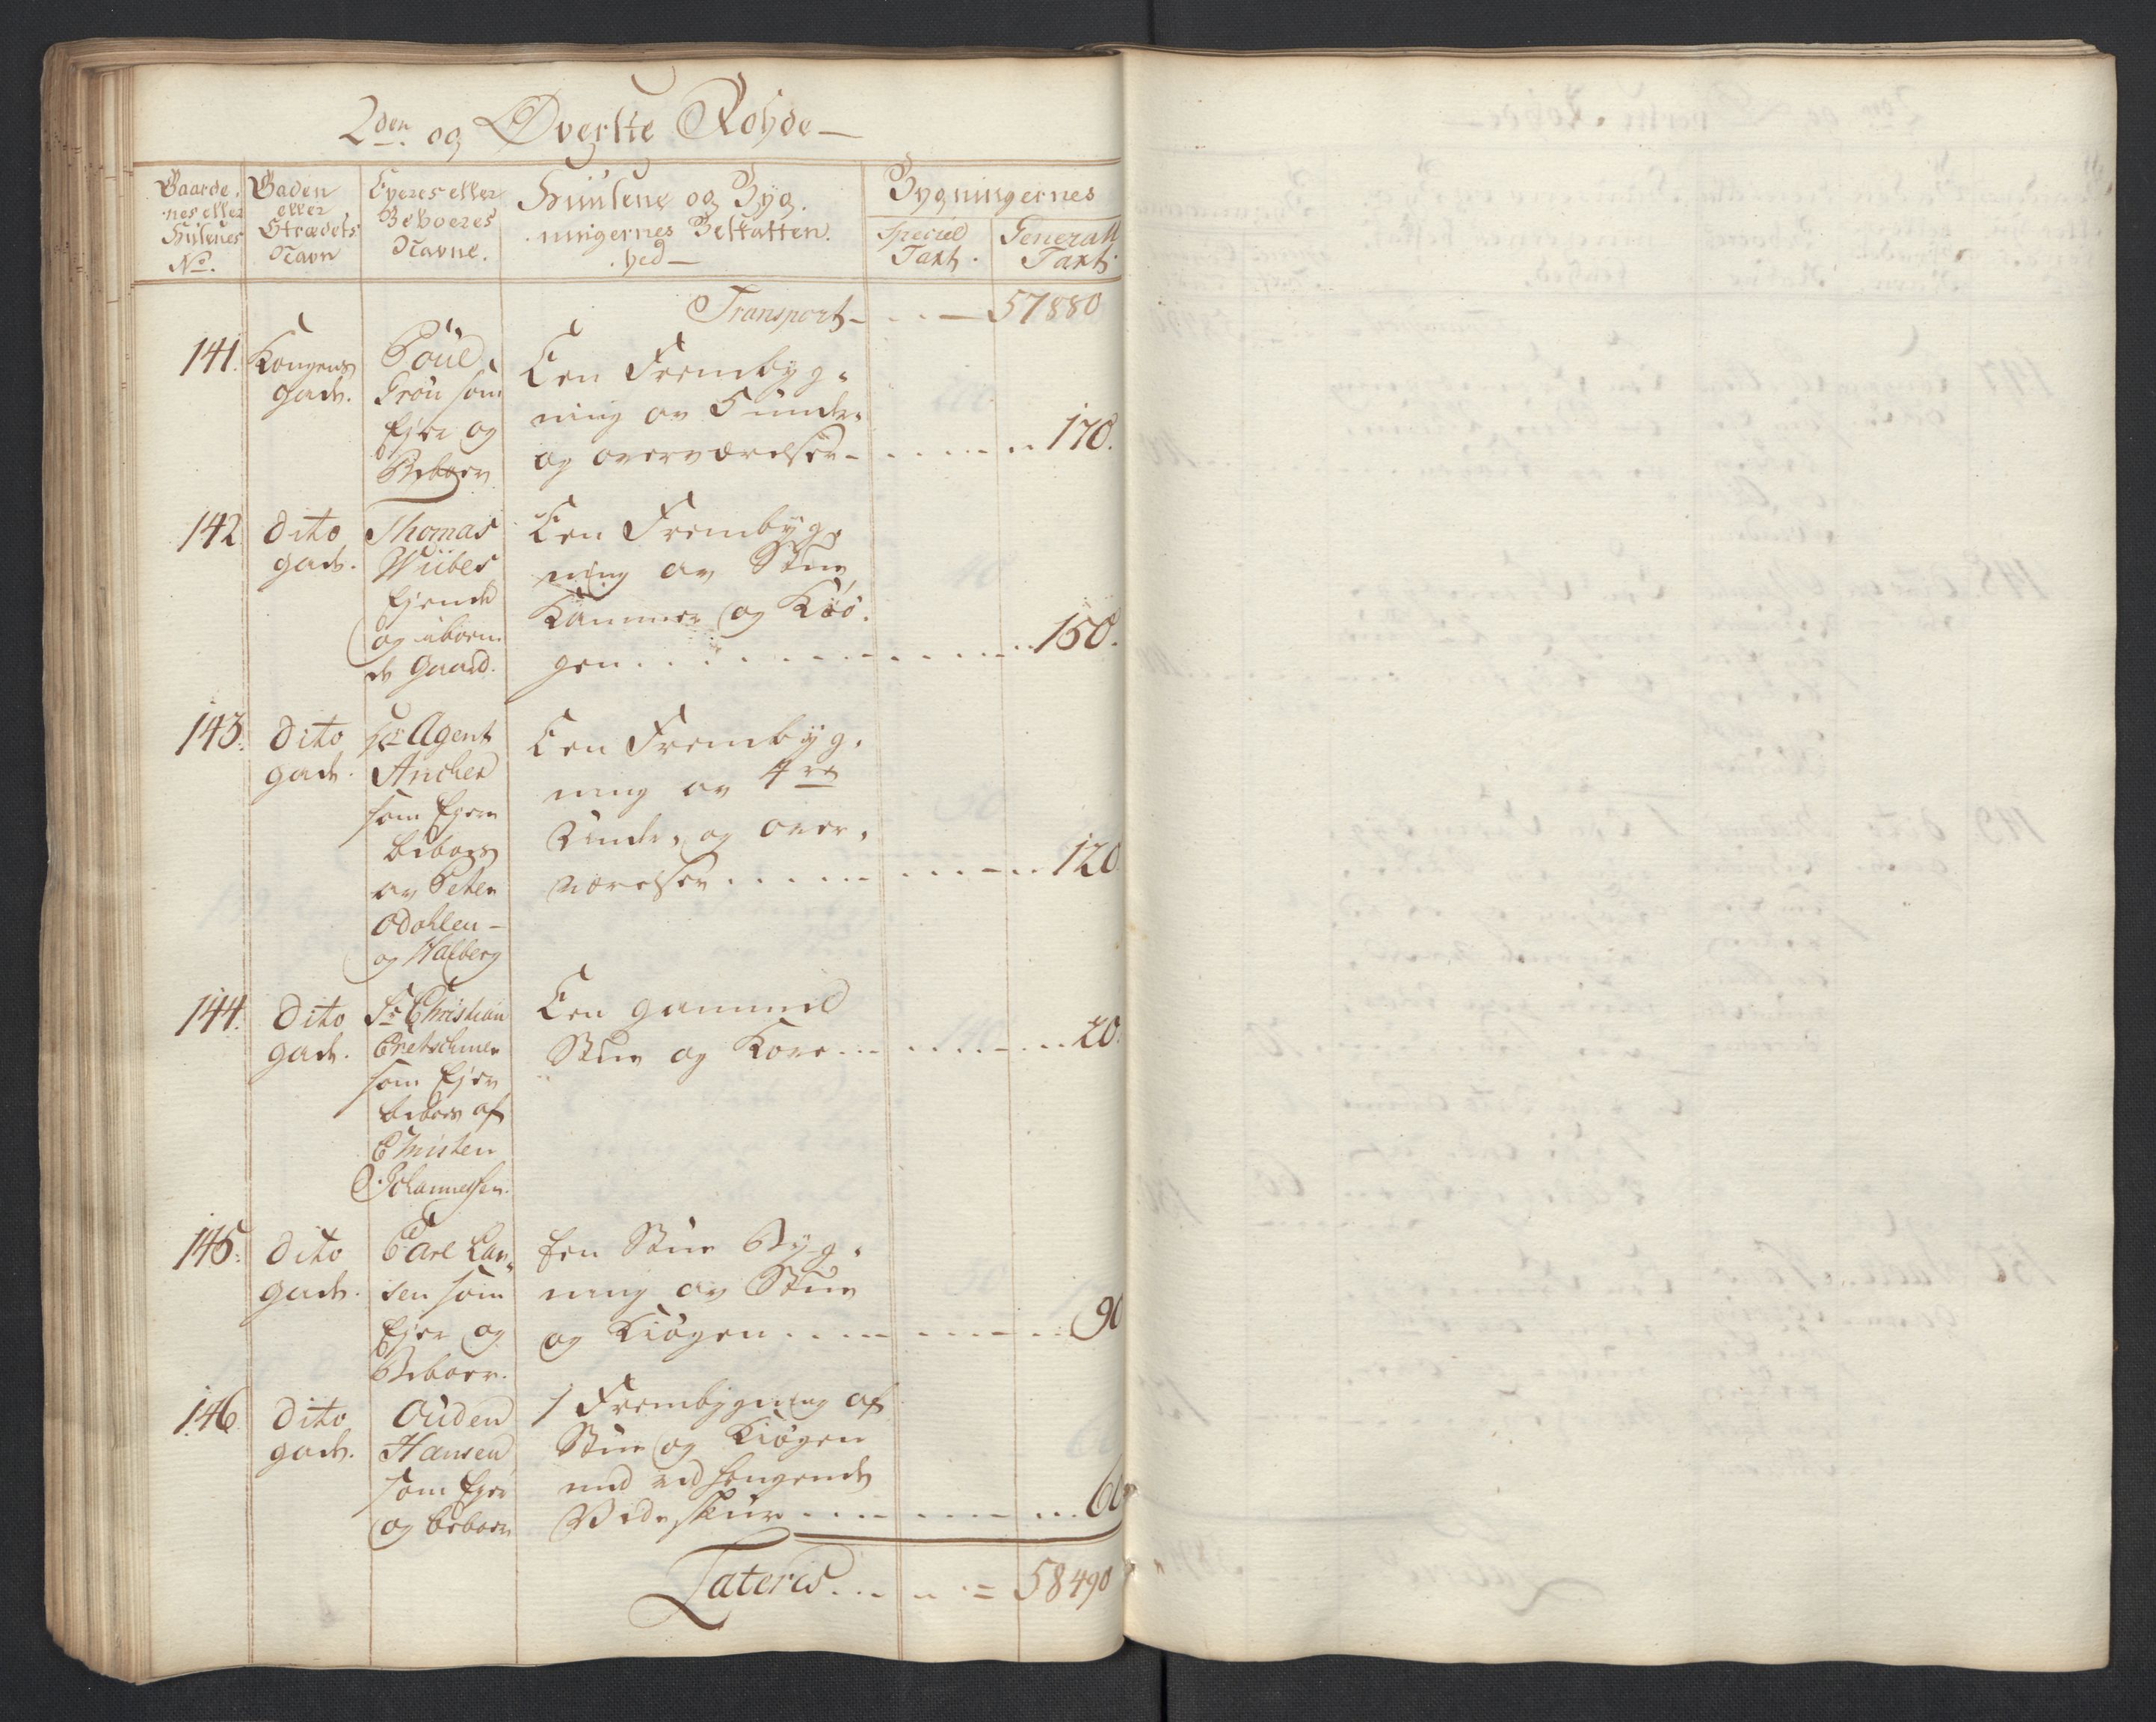 2den og Øverste Rohde
Gaarde-
nes eller
Huusenes
No.
Gaden
eller
Strædets
Navn
Eyeres eller
Beboeres
Navne.
Huusene og Byg-
ningernes Beskaffen-
hed
Bygningernes
Speciel
Taxt.
Generall
Taxt.
Transport - . . - 57880
141. Kongens
gade.
Poul
Gron som
Ejer og
Beboer
Een Frembyg-
ning av 5 under-
og overværelser - . . . . . 170.
142. dito
gade.
Thomas
Wiibes
Ejende
og iboen-
de Gaard.
Een Frembyg-
ning av Stue
Kammer og Kiø-
gen . . . . . . . . . . 150.
143. dito
gade.
Hr Agent
Ancher
som Ejer
beboes
av Peter
Odahlen -
og Halberg
Een Frembyg-
ning av 4re
Under- og over-
værelser . . . . . . . . 120
144. dito
gade.
Sr Christian
Cretschmer
som Ejer
beboes af
Christen
Johannessen.
Een gammel
Stue og Kove . . . . . . . 20.
145. dito
gade.
Carl Lar-
sen som
Ejer og
Beboer.
Een Stue Byg-
ning av Stue
og Kiøgen . . . . . . . 90
146. dito
gade.
Ouden
Hansen
som Ejer
og beboer
1 Frembygning af
Stue og Kiøgen
med vedhengende
Vedeskuur . . . . . . . 60
Lateris . . . . = 58490